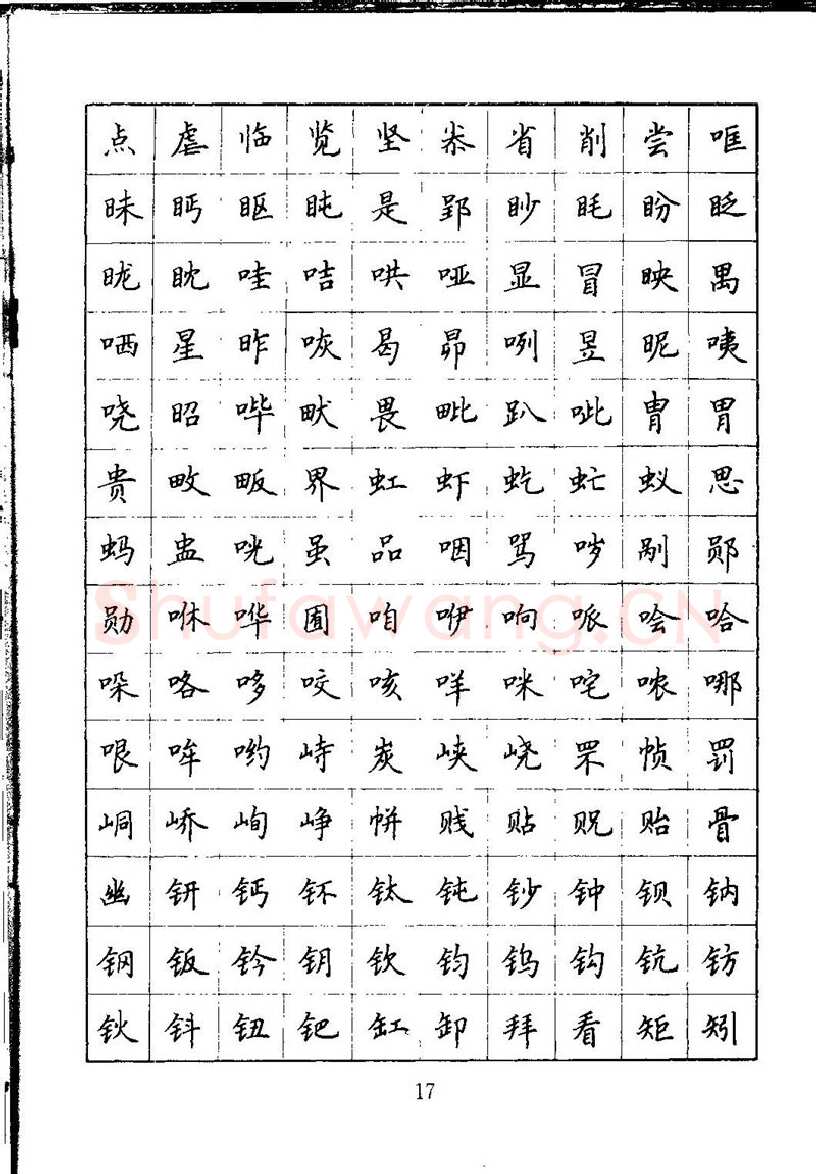 点 虐 临 览 坚 尜 省 削 尝 哐
昧 眄 眍 盹 是 郢 眇 眊 盼 眨
昽 眈 哇 咭 哄 哑 显 冒 映 禺
哂 星 昨 咴 曷 昴 咧 昱 昵 咦
哓 昭 哔 畎 畏 毗 趴 呲 胄 胃
贵 畋 畈 界 虹 虾 虼 虻 蚁 思
蚂 盅 咣 虽 品 咽 骂 哕 剐 郧
勋 咻 哗 囿 咱 咿 响 哌 哙 哈
哚 咯 哆 咬 咳 咩 咪 咤 哝 哪
哏 哞 哟 峙 炭 峡 峣 罘 帧 罚
峒 峤 峋 峥 帡 贱 贴 贶 贻 骨
幽 钘 钙 钚 钛 钝 钞 钟 钡 钠
钢 钣 钤 钥 钦 钧 钨 钩 钪 钫
钬 钭 钮 钯 缸 卸 拜 看 矩 矧
17
Shufawang.CN